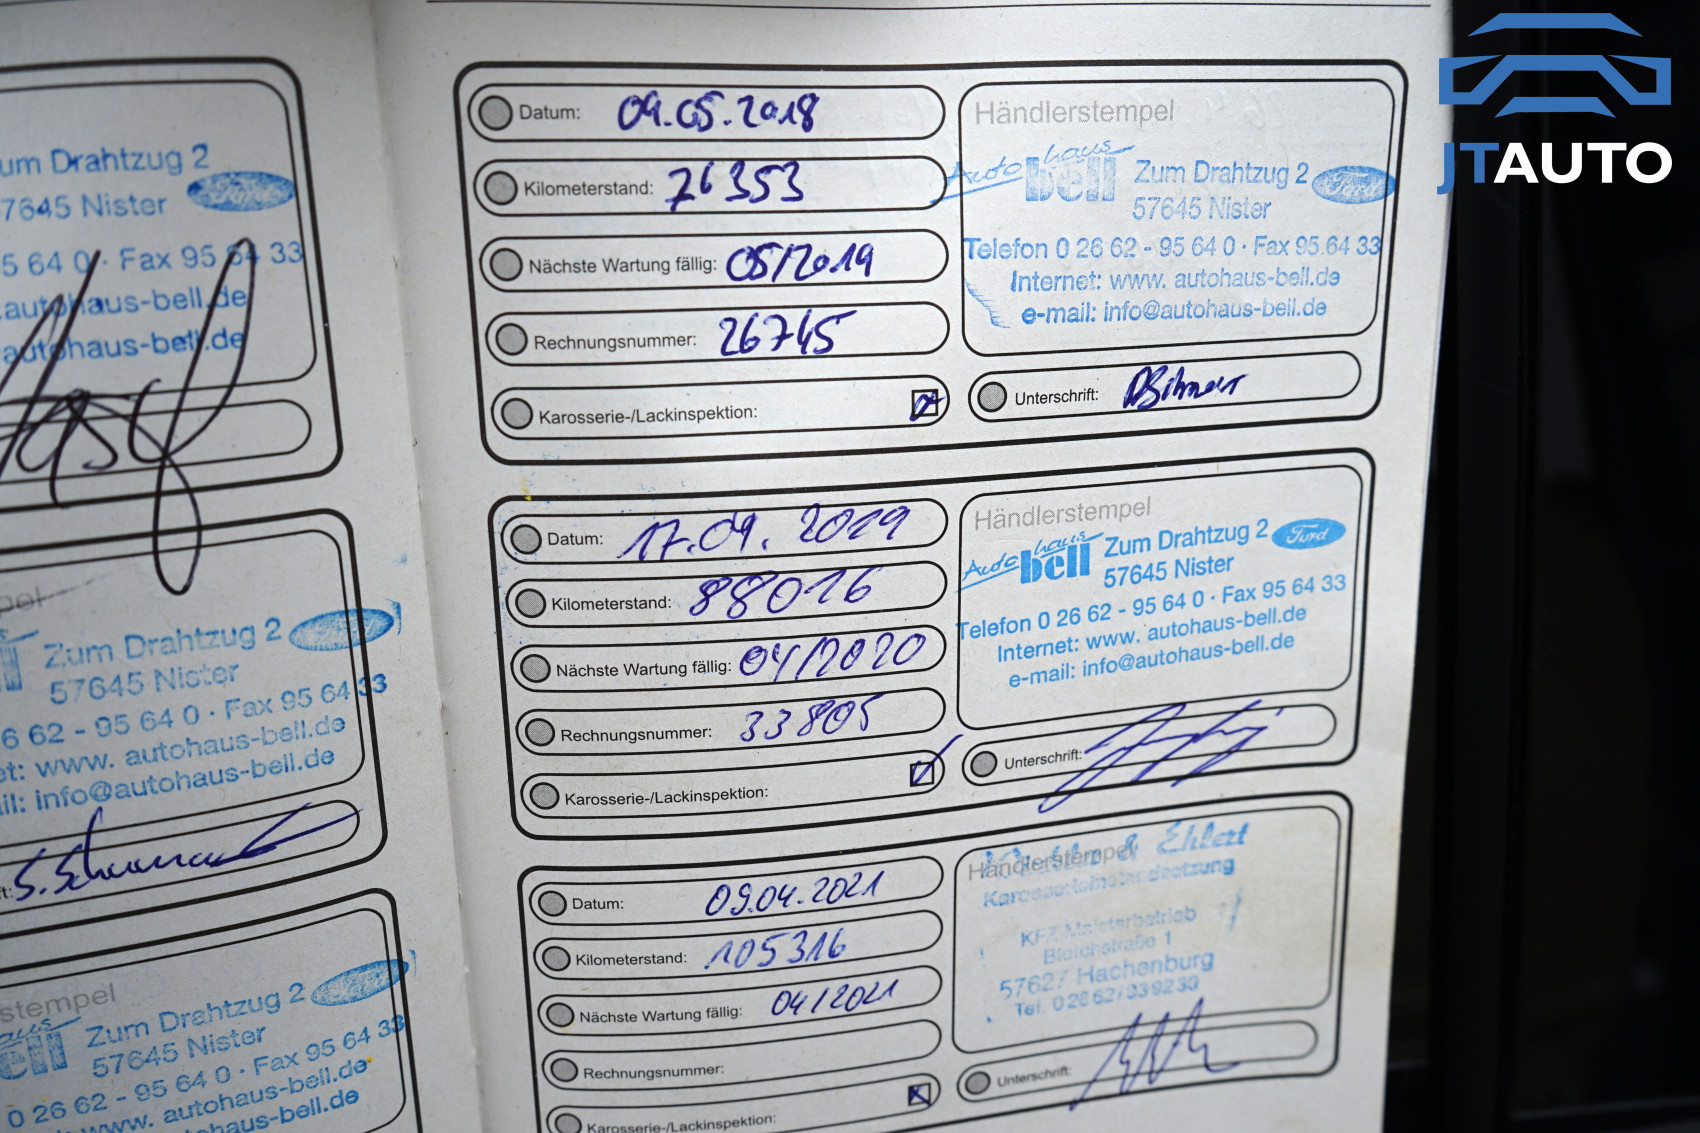 um Drahtzug 2
57645 Nister
Ford
5 64 0 · Fax 95 64 33
autohaus-bell.de
autohaus-bell.de
Zum Drahtzug 2
57645 Nister
6 62 - 95 64 0 · Fax 95 64 33
et: www. autohaus-bell.de
il: info@autohaus-bell.de
stempel
Zum Drahtzug 2
57645 Nister
0 26 62 - 95 64 0 · Fax 95 64 33
www. autohaus-bell.de
haus-bell.de
Datum: 09.05.2018
Kilometerstand: 76353
Nächste Wartung fällig: 05/2019
Rechnungsnummer: 26745
Karosserie-/Lackinspektion:
Händlerstempel
Auto haus bell Zum Drahtzug 2 Ford
57645 Nister
Telefon 0 26 62 - 95 64 0 · Fax 95 64 33
Internet: www. autohaus-bell.de
e-mail: info@autohaus-bell.de
Unterschrift:
Datum: 17.04.2019
Kilometerstand: 88016
Nächste Wartung fällig: 04/2020
Rechnungsnummer: 33805
Karosserie-/Lackinspektion:
Händlerstempel
Auto haus bell Zum Drahtzug 2 Ford
57645 Nister
Telefon 0 26 62 - 95 64 0 · Fax 95 64 33
Internet: www. autohaus-bell.de
e-mail: info@autohaus-bell.de
Unterschrift:
Datum: 09.04.2021
Kilometerstand: 105316
Nächste Wartung fällig: 04/2021
Rechnungsnummer:
Karosserie-/Lackinspektion:
Händlerstempel
& Ehlert
Karosserieinstandsetzung
KFZ-Meisterbetrieb
Bleichstraße 1
57627 Hachenburg
Tel. 0 26 62 / 93 92 30
Unterschrift:
JTAUTO